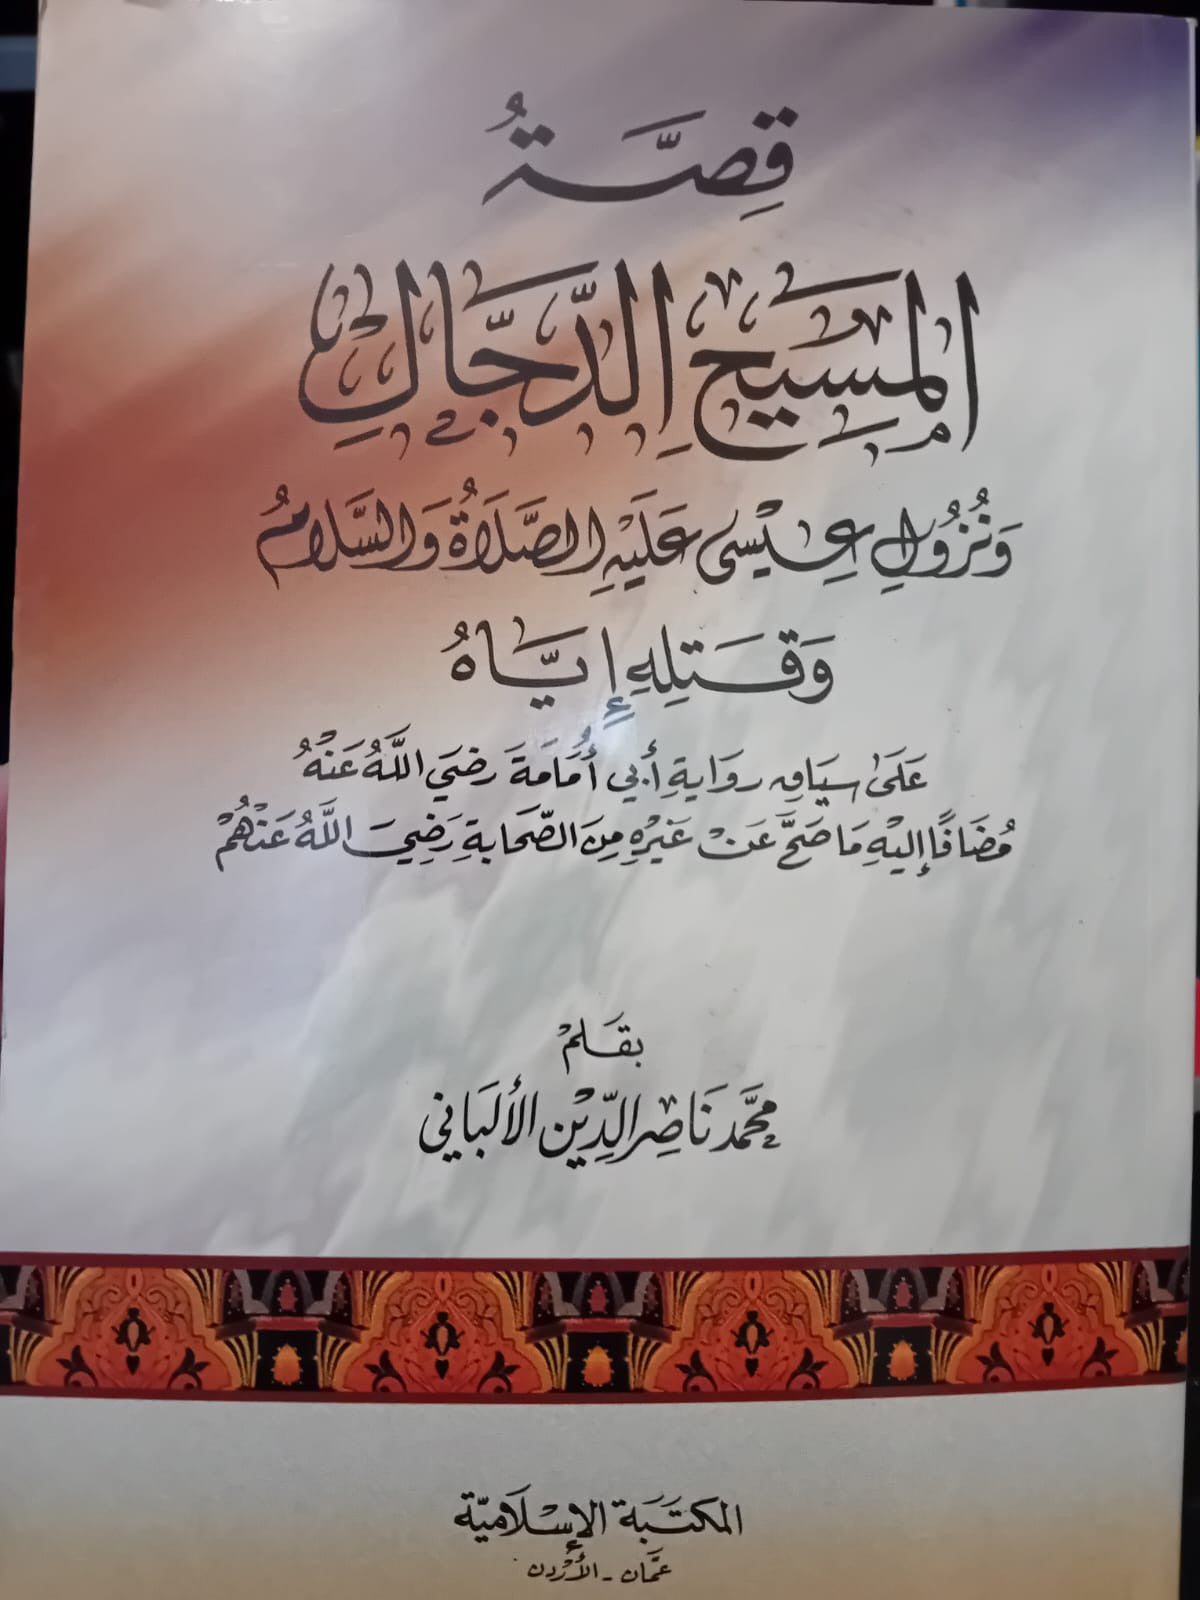 قِصَّةُ
المَسِيحِ الدَّجَّالِ
وَنُزُولِ عِيسَى عَلَيْهِ الصَّلَاةُ وَالسَّلَامُ
وَقَتْلِهِ إِيَّاهُ
عَلَى سِيَاقِ رِوَايَةِ أَبِي أُمَامَةَ رَضِيَ اللَّهُ عَنْهُ
مُضَافًا إِلَيْهِ مَا صَحَّ عَنْ غَيْرِهِ مِنَ الصَّحَابَةِ رَضِيَ اللَّهُ عَنْهُمْ
بِقَلَمْ
مُحَمَّد نَاصِر الدِّيْن الأَلْبَانِي
المَكْتَبَة الإِسْلَامِيَّة
عَمَّان - الأُرْدُن